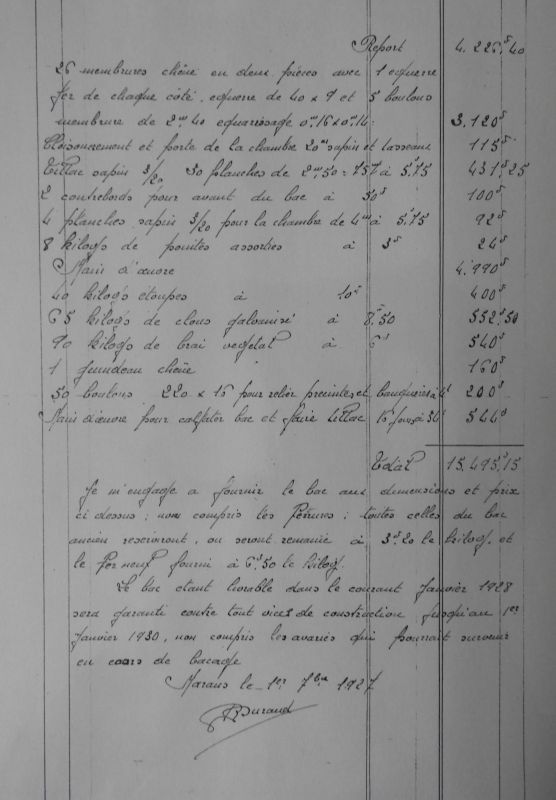 Report 4.226,40
26 membrures chêne en deux pièces avec 1 equerre
fer de chaque côté, equerre de 40 x 9 et 5 boulons
membrure de 2m40 equarissage 0m16 x 0m14. 3.120f
Cloisonnement et porte de la chambre 20m sapin et tasseaux 115f
Tillac sapin 3/20 30 planches de 2m,50 = 75m à 5f75 431f25
2 contrebords pour avant du bac à 50f 100f
4 planches sapin 3/20 pour la chambre de 4m à 5f75 92f
8 kilogs de pointes assorties à 3f 24f
Main d'œuvre 4.990f
40 kilogs étoupes à 10f 400f
65 kilogs de clous galvanisé à 8f,50 552f,50
90 kilogs de brai vegetal à 6f 540f
1 guindeau chêne 160f
50 boulons 220 x 16 pour relier preintes et bauquieres à 4f 200f
Main d'œuvre pour calfater bac et faire tillac 16 jours à 34f 544f
Total 15.495f,15
Je m'engage a fournir le bac aux dimensions et prix
ci dessus; non compris les ferrures; toutes celles du bac
ancien reserviront, ou seront remanié à 3f,20 le kilog, et
le fer neuf fourni à 6f,50 le kilog.
Le bac etant livrable dans le courant Janvier 1928
sera garanti contre tout vices de construction jusqu'au 1er
Janvier 1930, non compris les avaries qui pourrait survenir
en cours de bacage
Marans le 1er 7bre 1927
Durand